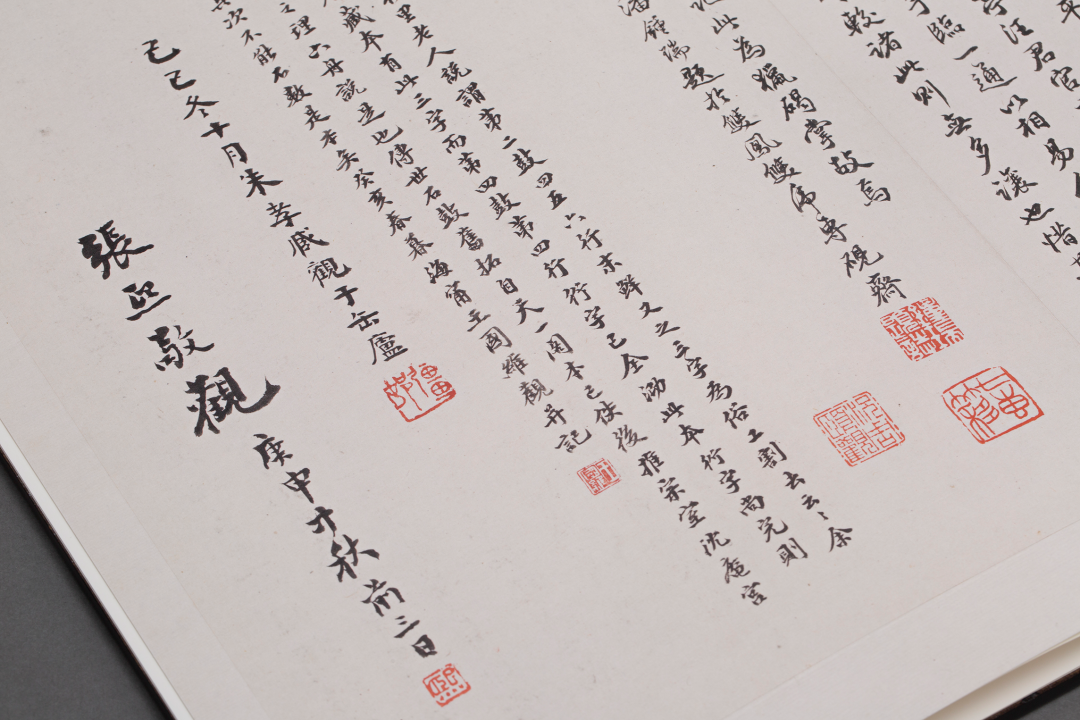 平
亭汪君官
手臨一通以相易
較諸此則無多讓也惜
此為獵碣掌故焉
潘鍾瑞題於雙鳳雙虎專硯齋
里老人說謂第二鼓四五六行末鮮又之三字為俗工割去云〻余
藏本有此三字而第四鼓第四行衍字已全泐此本衍字尚完則
之理六舟說是也傳世石鼓舊拓自天一閣本已佚後推宗室沈庵宮
次不能不數是本矣癸亥春暮海甯王國維觀并記
己巳冬十月朱孝臧觀于缶廬
張熙敬觀庚申中秋前三日